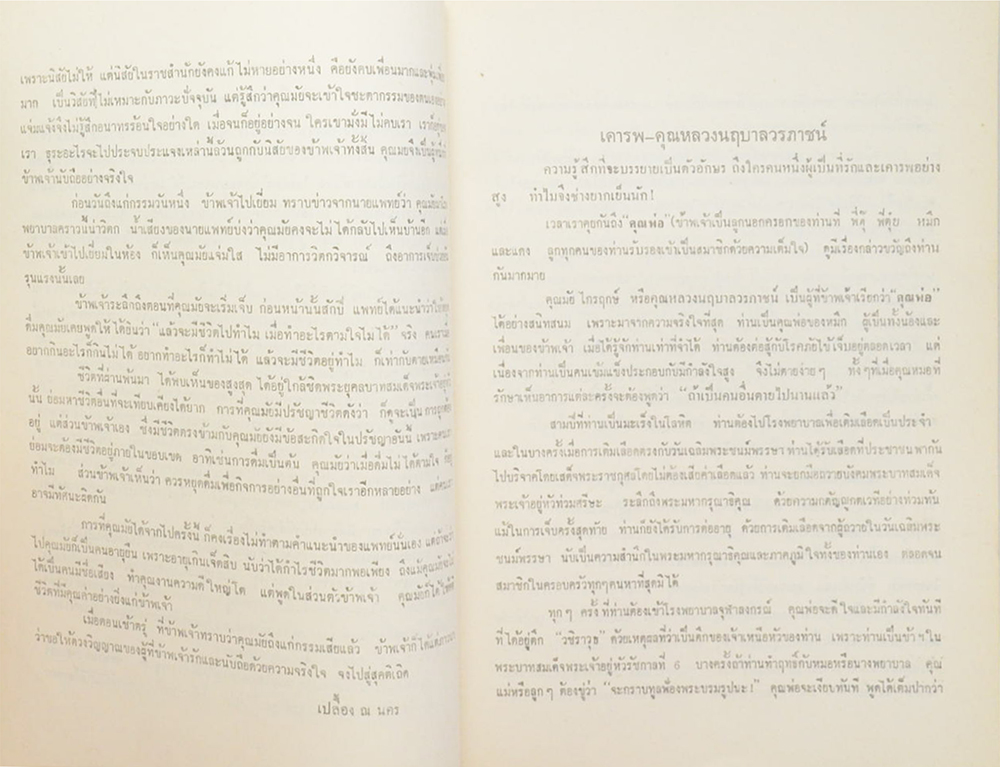 เพราะนิสัยไม่ให้ แต่นิสัยในราชสำนักยังคงแก้ไม่หายอย่างหนึ่ง คือยังคบเพื่อนมากและฟุ่มเฟือย
มาก เป็นวิสัยที่ไม่เหมาะกับภาวะปัจจุบัน แต่รู้สึกว่าคุณมัยจะเข้าใจชะตากรรมของตนเองอย่าง
แจ่มแจ้งจึงไม่รู้สึกอนาทรร้อนใจอย่างใด เมื่อจนก็อยู่อย่างจน ใครเขามั่งมีไม่คบเรา เราก็อยู่ของ
เรา ธุระอะไรจะไปประจบประแจงเหล่านี้ล้วนถูกกับนิสัยของข้าพเจ้าทั้งสิ้น คุณมัยจึงเป็นผู้หนึ่งที่
ข้าพเจ้านับถืออย่างจริงใจ
ก่อนวันถึงแก่กรรมวันหนึ่ง ข้าพเจ้าไปเยี่ยม ทราบข่าวจากนายแพทย์ว่า คุณมัยมา
พยาบาลคราวนี้น่าวิตก น้ำเสียงของนายแพทย์บ่งว่าคุณมัยคงจะไม่ได้กลับไปเห็นบ้านอีก แต่เมื่อ
ข้าพเจ้าเข้าไปเยี่ยมในห้อง ก็เห็นคุณมัยแจ่มใส ไม่มีอาการวิตกวิจารณ์ ถึงอาการเจ็บป่วย
รุนแรงนั้นเลย
ข้าพเจ้าระลึกถึงตอนที่คุณมัยจะเริ่มเจ็บ ก่อนหน้านั้นสักปี แพทย์ได้แนะนำว่าให้
ดื่มคุณมัยเคยพูดให้ได้ยินว่า “แล้วจะมีชีวิตไปทำไม เมื่อทำอะไรตามใจไม่ได้” จริง คนเรา
อยากกินอะไรก็กินไม่ได้ อยากทำอะไรก็ทำไม่ได้ แล้วจะมีชีวิตอยู่ทำไม ก็เท่ากับตาย
ชีวิตที่ผ่านพ้นมา ได้พบเห็นของสูงสุด ได้อยู่ใกล้ชิดพระยุคลบาทสมเด็จพระเจ้าอยู่หัว
นั้น ย่อมหาชีวิตอื่นที่จะเทียบเคียงได้ยาก การที่คุณมัยมีปรัชญาชีวิตดังว่า ก็ดูจะเป็นการถูกต้อง
อยู่ แต่ส่วนข้าพเจ้าเอง ซึ่งมีชีวิตตรงข้ามกับคุณมัยยังมีข้อสะกิดใจในปรัชญาอันนี้ เพราะคนเรา
ย่อมจะต้องมีชีวิตอยู่ภายในขอบเขต อาทิเช่นการดื่มเป็นต้น คุณมัยว่าเมื่อดื่มไม่ได้ตามใจ
ทำไม ส่วนข้าพเจ้าเห็นว่า ควรหยุดดื่มเพื่อกิจการอย่างอื่นที่ถูกใจเราอีกหลายอย่าง แต่คนเรา
อาจมีทัศนะผิดกัน
การที่คุณมัยได้จากไปครั้งนี้ ก็คงเรื่องไม่ทำตามคำแนะนำของแพทย์นั่นเอง แต่ถ้าจะว่า
ไปคุณมัยก็เป็นคนอายุยืน เพราะอายุเกินเจ็ดสิบ นับว่าได้กำไรชีวิตมากพอเพียง ถึงแม้คุณมัยจะไม่
ได้เป็นคนมีชื่อเสียง ทำคุณงานความดีใหญ่โต แต่พูดในส่วนตัวข้าพเจ้า คุณมัยก็ได้ให้
ชีวิตที่มีคุณค่าอย่างยิ่งแก่ข้าพเจ้า
เมื่อตอนเช้าตรู่ ที่ข้าพเจ้าทราบว่าคุณมัยถึงแก่กรรมเสียแล้ว ข้าพเจ้าก็ได้แต่ภาวนา
ว่าขอให้ดวงวิญญาณของผู้ที่ข้าพเจ้ารักและนับถือด้วยความจริงใจ จงไปสู่สุคติเถิด
เปลื้อง ณ นคร
เคารพ-คุณหลวงนฤบาลวรภาชน์
ความรู้สึกที่จะบรรยายเป็นตัวอักษร ถึงใครคนหนึ่งผู้เป็นที่รักและเคารพอย่าง
สูง ทำไมจึงช่างยากเย็นนัก!
เวลาเราคุยกันถึง“คุณพ่อ” (ข้าพเจ้าเป็นลูกนอกครอกของท่านที่ พี่คุ๊ พี่ตุ๋ย หมึก
และแดง ลูกทุกคนของท่านรับรองเข้าเป็นสมาชิกด้วยความเต็มใจ) ดูมีเรื่องกล่าวขวัญถึงท่าน
กันมากมาย
คุณมัย ไกรฤกษ์ หรือคุณหลวงนฤบาลวรภาชน์ เป็นผู้ที่ข้าพเจ้าเรียกว่า “คุณพ่อ”
ได้อย่างสนิทสนม เพราะมาจากความจริงใจที่สุด ท่านเป็นคุณพ่อของหมึก ผู้เป็นทั้งน้องและ
เพื่อนของข้าพเจ้า เมื่อได้รู้จักท่านเท่าที่จำได้ ท่านต้องต่อสู้กับโรคภัยไข้เจ็บอยู่ตลอดเวลา แต่
เนื่องจากท่านเป็นคนเข้มแข็งประกอบกับมีกำลังใจสูง จึงไม่ตายง่ายๆ ทั้งๆที่เมื่อคุณหมอที่
รักษาเห็นอาการแต่ละครั้งจะต้องพูดว่า “ถ้าเป็นคนอื่นตายไปนานแล้ว”
สามปีที่ท่านเป็นมะเร็งในโลหิต ท่านต้องไปโรงพยาบาลเพื่อเติมเลือดเป็นประจำ
และในบางครั้งเมื่อการเติมเลือดตรงกับวันเฉลิมพระชนม์พรรษา ท่านได้รับเลือดที่ประชาชน พากัน
ไปบริจาคโดยเสด็จพระราชกุศลโดยไม่ต้องเสียค่าเลือดแล้ว ท่านจะยกมือถวายบังคมพระบาทสมเด็จ
พระเจ้าอยู่หัวท่วมศรีษะ ระลึกถึงพระมหากรุณาธิคุณ ด้วยความกตัญญูกตเวทีอย่างท่วมท้น
แม้ในการเจ็บครั้งสุดท้าย ท่านก็ยังได้รับการต่ออายุ ด้วยการเติมเลือดจากผู้ถวายในวันเฉลิมพระ
ชนม์พรรษา นับเป็นความสำนึกในพระมหากรุณาธิคุณและภาคภูมิใจทั้งของท่านเอง ตลอดจน
สมาชิกในครอบครัวทุกๆคนหาที่สุดมิได้
ทุกๆ ครั้งที่ท่านต้องเข้าโรงพยาบาลจุฬาลงกรณ์ คุณพ่อจะดีใจและมีกำลังใจทันที
ที่ได้อยู่ตึก “วชิราวุธ” ด้วยเหตุผลที่ว่าเป็นตึกของเจ้าเหนือหัวของท่าน เพราะท่านเป็นข้าฯใน
พระบาทสมเด็จพระเจ้าอยู่หัวรัชกาลที่ 6 บางครั้งถ้าท่านทำฤทธิ์กับหมอหรือนางพยาบาล คุณ
แม่หรือลูกๆ ต้องขู่ว่า “จะกราบทูลฟ้องพระบรมรูปนะ!” คุณพ่อจะเงียบทันที พูดได้เต็มปากว่า